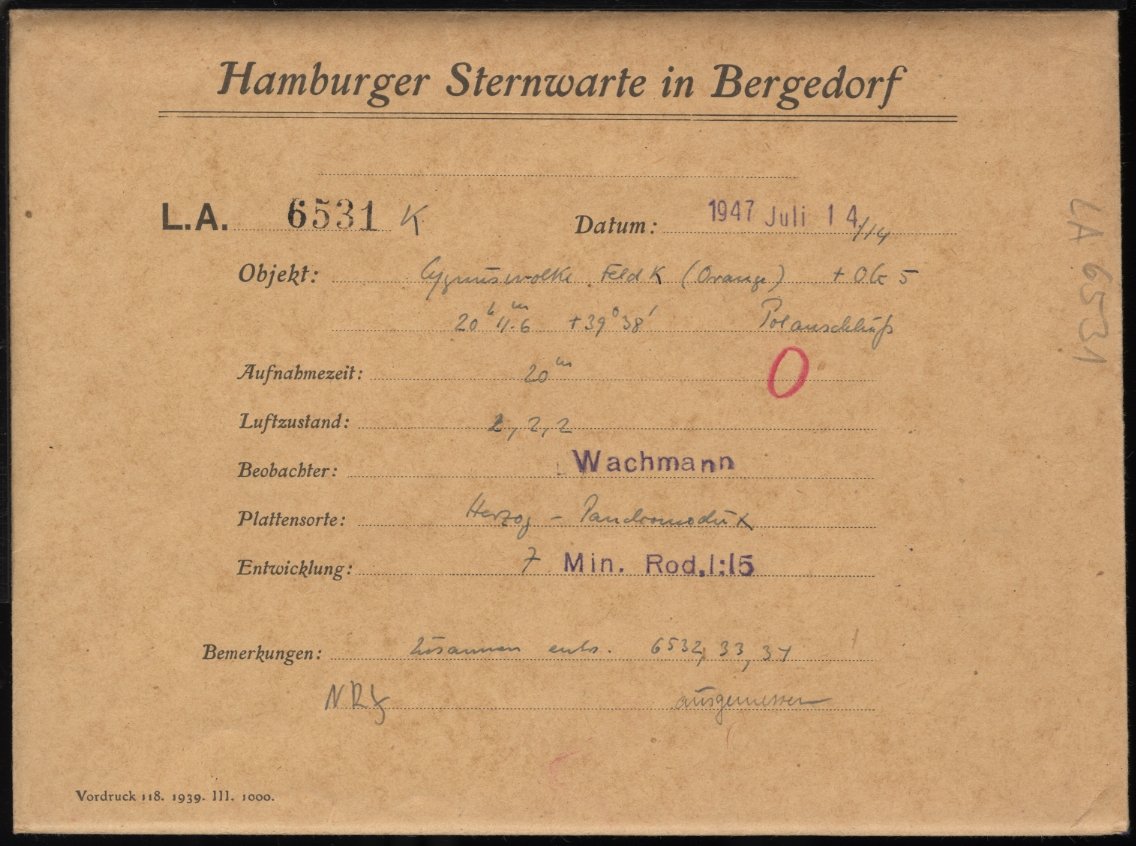 Hamburger Sternwarte in Bergedorf
L.A. 6531 K Datum: 1947 Juli 14/14
Objekt: Cygnuswolke Feld K (Orange) + OG 5
20h 11.m6 +39° 38' Polanschluß
Aufnahmezeit: 20m
O
Luftzustand: 2, 2, 2
Beobachter: Wachmann
Plattensorte: Herzog -
Entwicklung: 7 Min. Rod.1:15
Bemerkungen: Zusammen entw. 6532, 33, 34
ausgemessen
Vordruck 118. 1939. III. 1000.
LA 6531